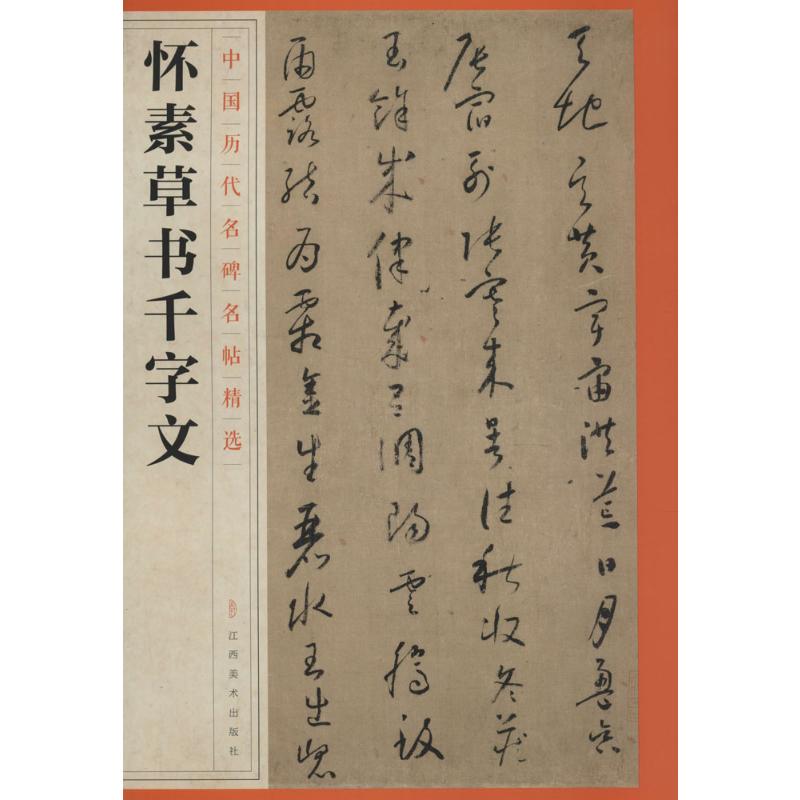 怀素草书千字文
中国历代名碑名帖精选
江西美术出版社
天地玄黃宇宙洪荒日月盈昃
辰宿列張寒來暑往秋收冬藏
閏餘成律歲呂調陽雲騰致
雨露結為霜金生麗水玉出崑